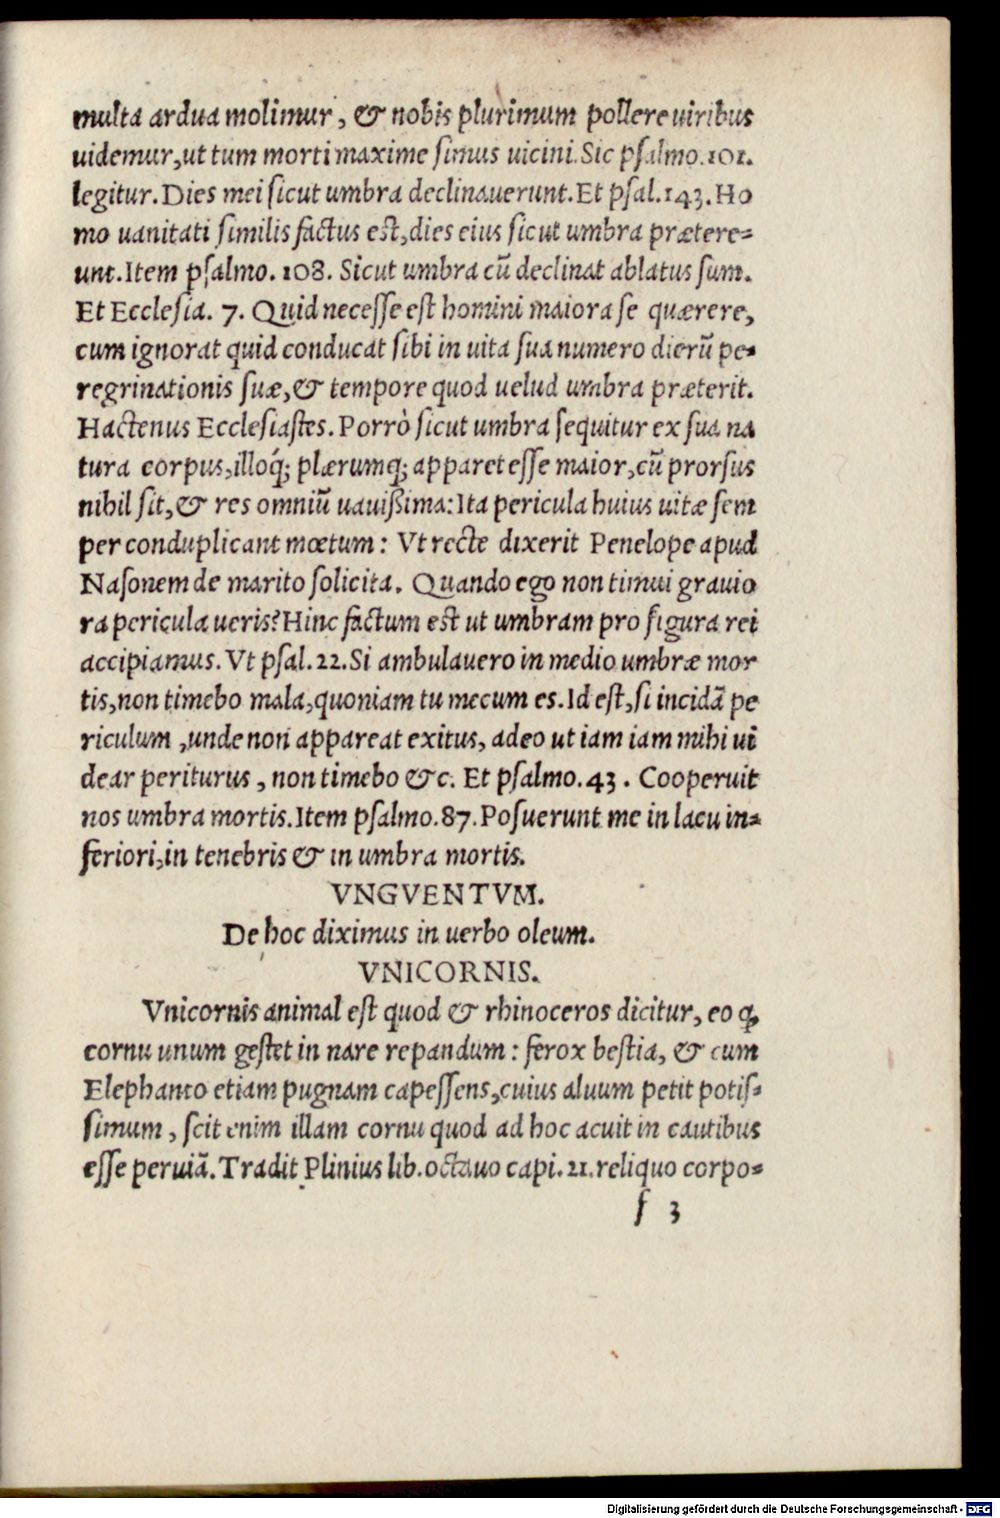 multa ardua molimur, & nobis plurimum pollere uiribus
uidemur, ut tum morti maxime simus uicini. Sic psalmo. 101.
legitur. Dies mei sicut umbra declinauerunt. Et psal. 143. Ho
mo uanitati similis factus est, dies eius sicut umbra prætere=
unt. Item psalmo. 108. Sicut umbra cū declinat ablatus sum.
Et Ecclesia. 7. Quid necesse est homini maiora se quærere,
cum ignorat quid conducat sibi in uita sua numero dierū pe=
regrinationis suæ, & tempore quod uelud umbra præterit.
Hactenus Ecclesiastes. Porrò sicut umbra sequitur ex sua na
tura corpus, illoq́; plærumq; apparet esse maior, cū prorsus
nihil sit, & res omniū uauißima: Ita pericula huius uitæ sem
per conduplicant mœtum: Vt recte dixerit Penelope apud
Nasonem de marito solicita. Quando ego non timui grauio
ra pericula ueris? Hinc factum est ut umbram pro figura rei
accipiamus. Vt psal. 22. Si ambulauero in medio umbræ mor
tis, non timebo mala, quoniam tu mecum es. Id est, si incidā pe
riculum, unde non appareat exitus, adeo ut iam iam mihi ui
dear periturus, non timebo &c. Et psalmo. 43. Cooperuit
nos umbra mortis. Item psalmo. 87. Posuerunt me in lacu in=
feriori, in tenebris & in umbra mortis.
VNGVENTVM.
De hoc diximus in uerbo oleum.
VNICORNIS.
Vnicornis animal est quod & rhinoceros dicitur, eo ꝙ
cornu unum gestet in nare repandum: ferox bestia, & cum
Elephanto etiam pugnam capessens, cuius aluum petit potis=
simum, scit enim illam cornu quod ad hoc acuit in cautibus
esse peruiā. Tradit Plinius lib. octauo capi. 21. reliquo corpo=
f 3
Digitalisierung gefördert durch die Deutsche Forschungsgemeinschaft - DFG